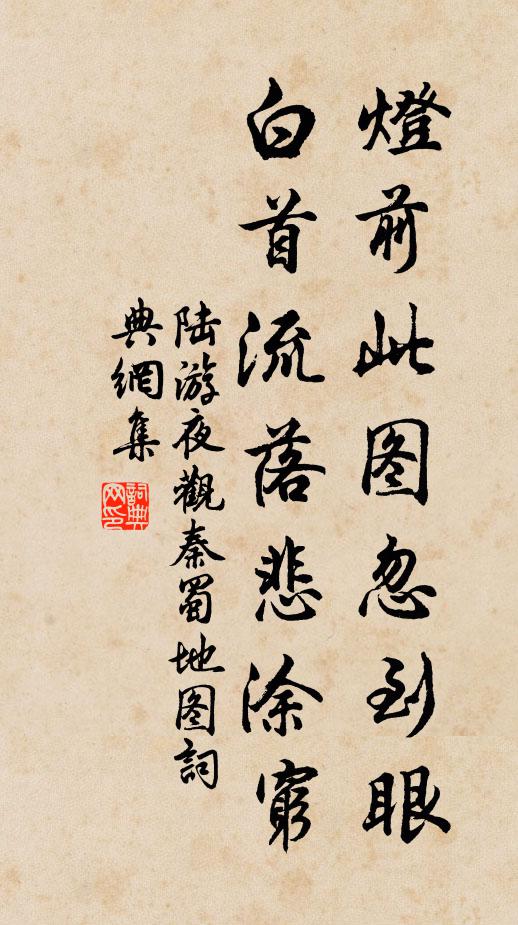 燈前此图忽到眼
白首流落悲涂窮
陆游夜觀秦蜀地图詞
典網集
詞典网印